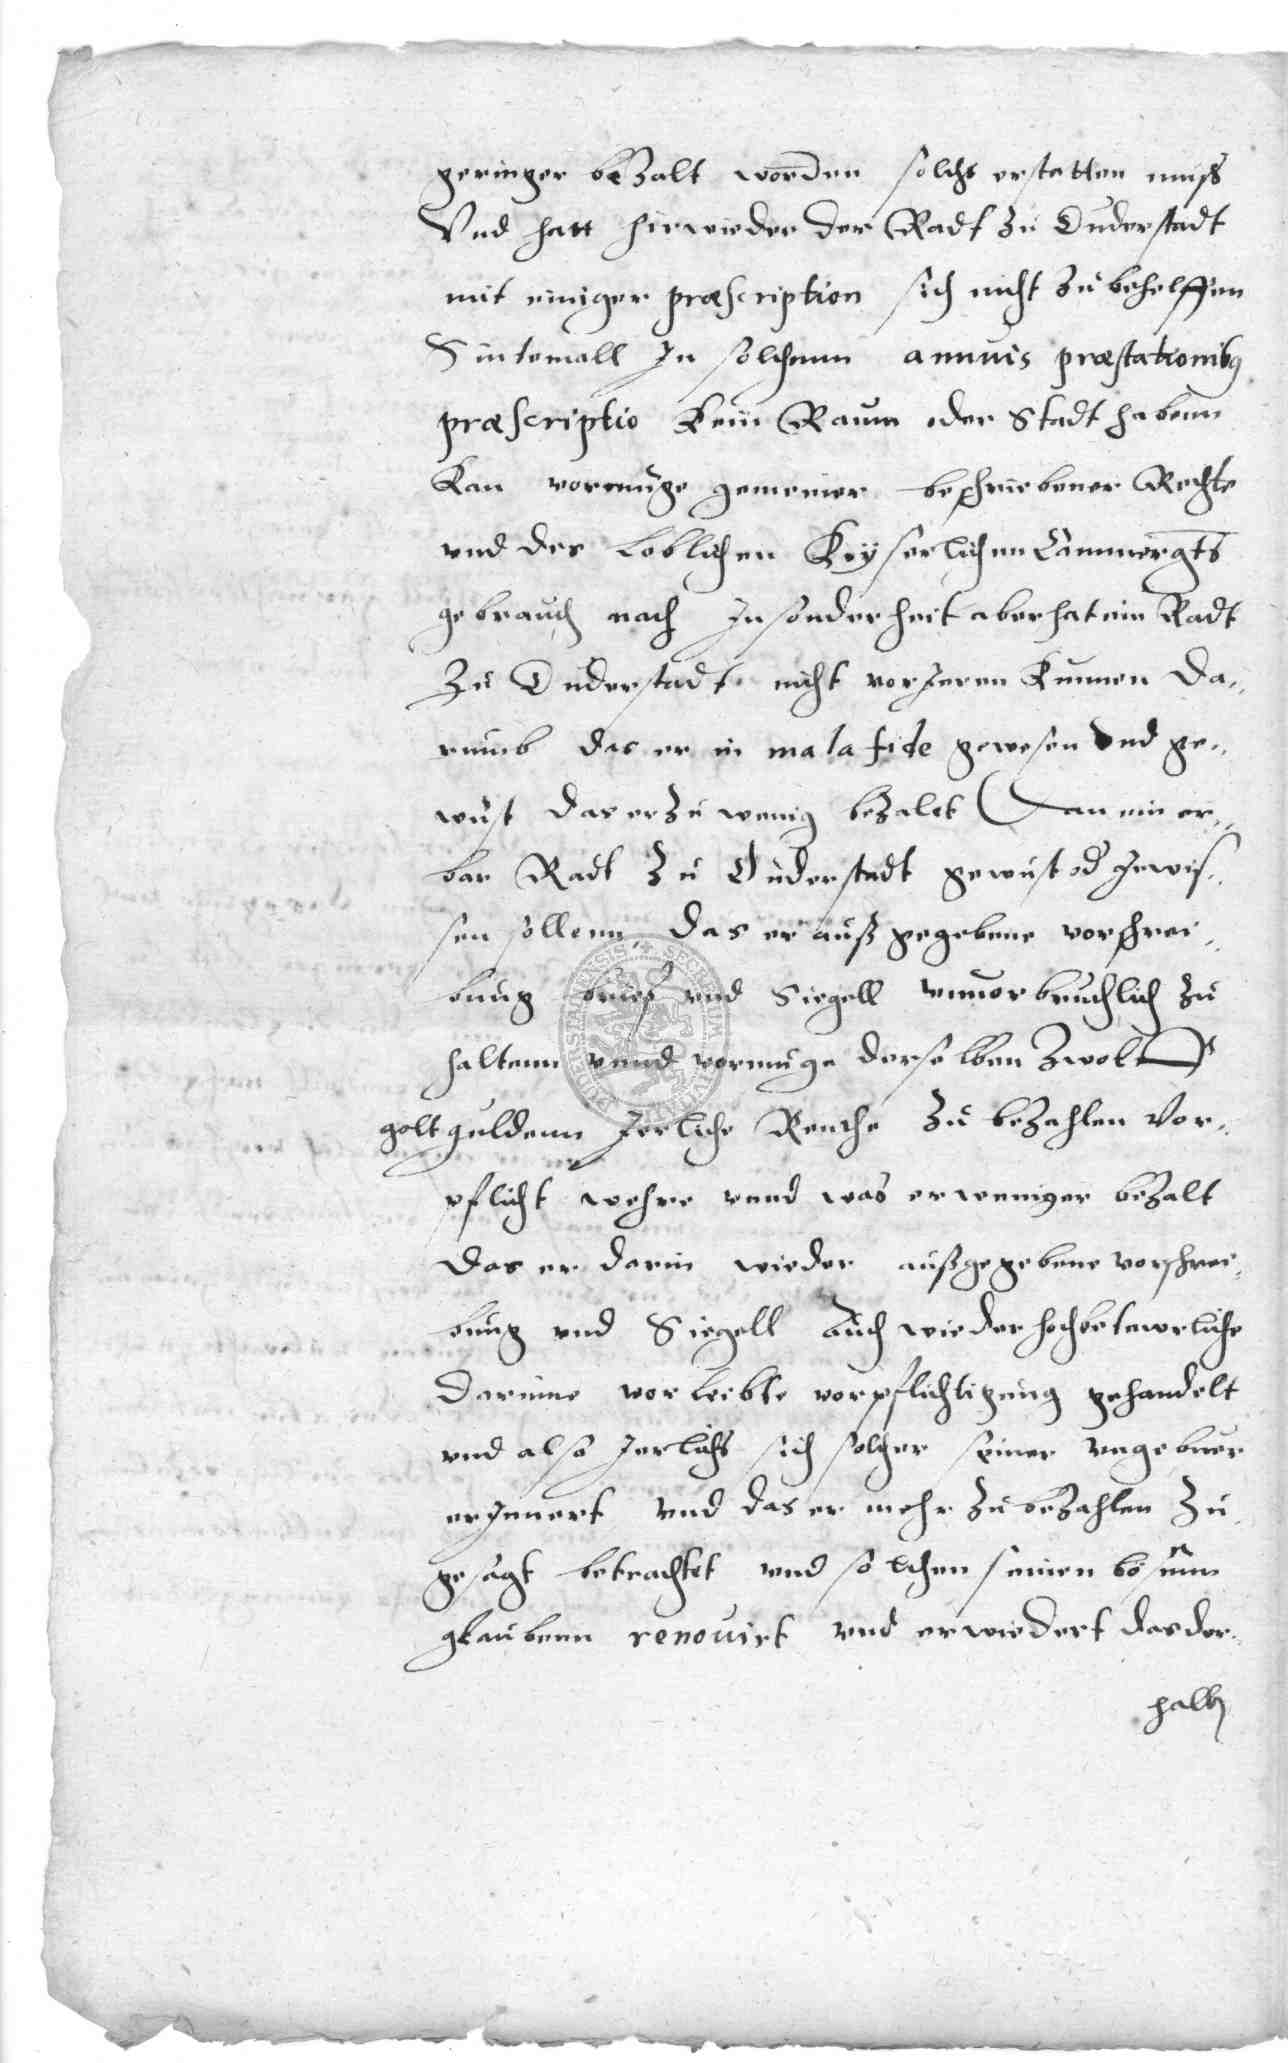 geringer bezalt worden solchs erstatten muss
Vnd hatt hirwieder der Radt zu Duderstadt
mit einiger præscription sich nicht zu behelffen
Sintemall In solchenn annuis præstationibus
præscriptio kein Raum oder Stadt habenn
kan vormuge gemeiner beschriebener Rechte
vnd des loblichen Keyserlichen Cammergts
gebrauch nach Insonderheit aber hat ein Radt
Zu Duderstadt nicht vorJeren kunnen da„
rumb das er in mala fide gewesen vnd ge„
wust das er zu wenig bezalet Dan ein er„
bar Radt zu Duderstadt gewust od Jewis„
sen sollenn das er auß gegebene vorschrei„
bung brief vnd Siegell vnuorbruchlich zu
haltenn vnnd vormuge derselben Zwolf
golt guldenn Jerliche Renthe zu bezahlen vor„
pflicht wehre vnnd was er weniger bezalt
das er darin wieder außgegebene vorschrei„
bung vnd Siegell auch wieder hochbetewrliche
darinne vorleibte vorpflichtigung gehandelt
vnd also Jerlichs sich solcher seiner vngebuer
erJnnert vnd das er mehr zu bezahlen zu
gesagt betrachtet vnd solchen seinen bösenn
glaubenn renouirt vnd erwiedert das der„
halb
SECRETUM CIVITATIS DUDERSTADENSIS